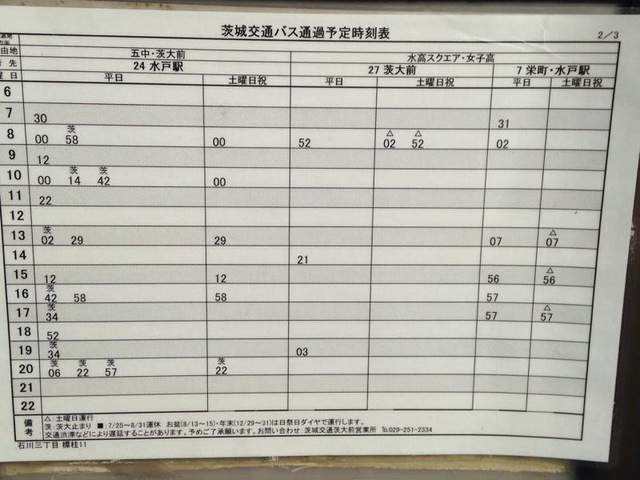 茨城交通バス通過予定時刻表 2/3
由地 五中・茨大前 水高スクエア・女子高
先 24 水戸駅 27 茨大前 7 栄町・水戸駅
曜日 平日 土曜日祝 平日 土曜日祝 平日 土曜日祝
6
7 30 31
茨 △ △
8 00 58 00 52 02 52 02
9 12
茨 茨
10 00 14 42 00
11 22
12
茨 △
13 02 29 29 07 07
14 21
△
15 12 12 56 56
茨
16 42 58 58 57
茨 △
17 34 57 57
18 52
茨
19 34 03
茨 茨 茨 茨
20 06 22 57 22
21
22
備考
△:土曜日運行
茨:茨大止まり ■:7/25~8/31運休 お盆(8/13~15)・年末(12/29~31)は日祭日ダイヤで運行します。
交通渋滞などにより遅延することがあります。予めご了承願います。お問い合わせ:茨城交通茨大前営業所 TEL029-251-2334
石川三丁目 標柱11